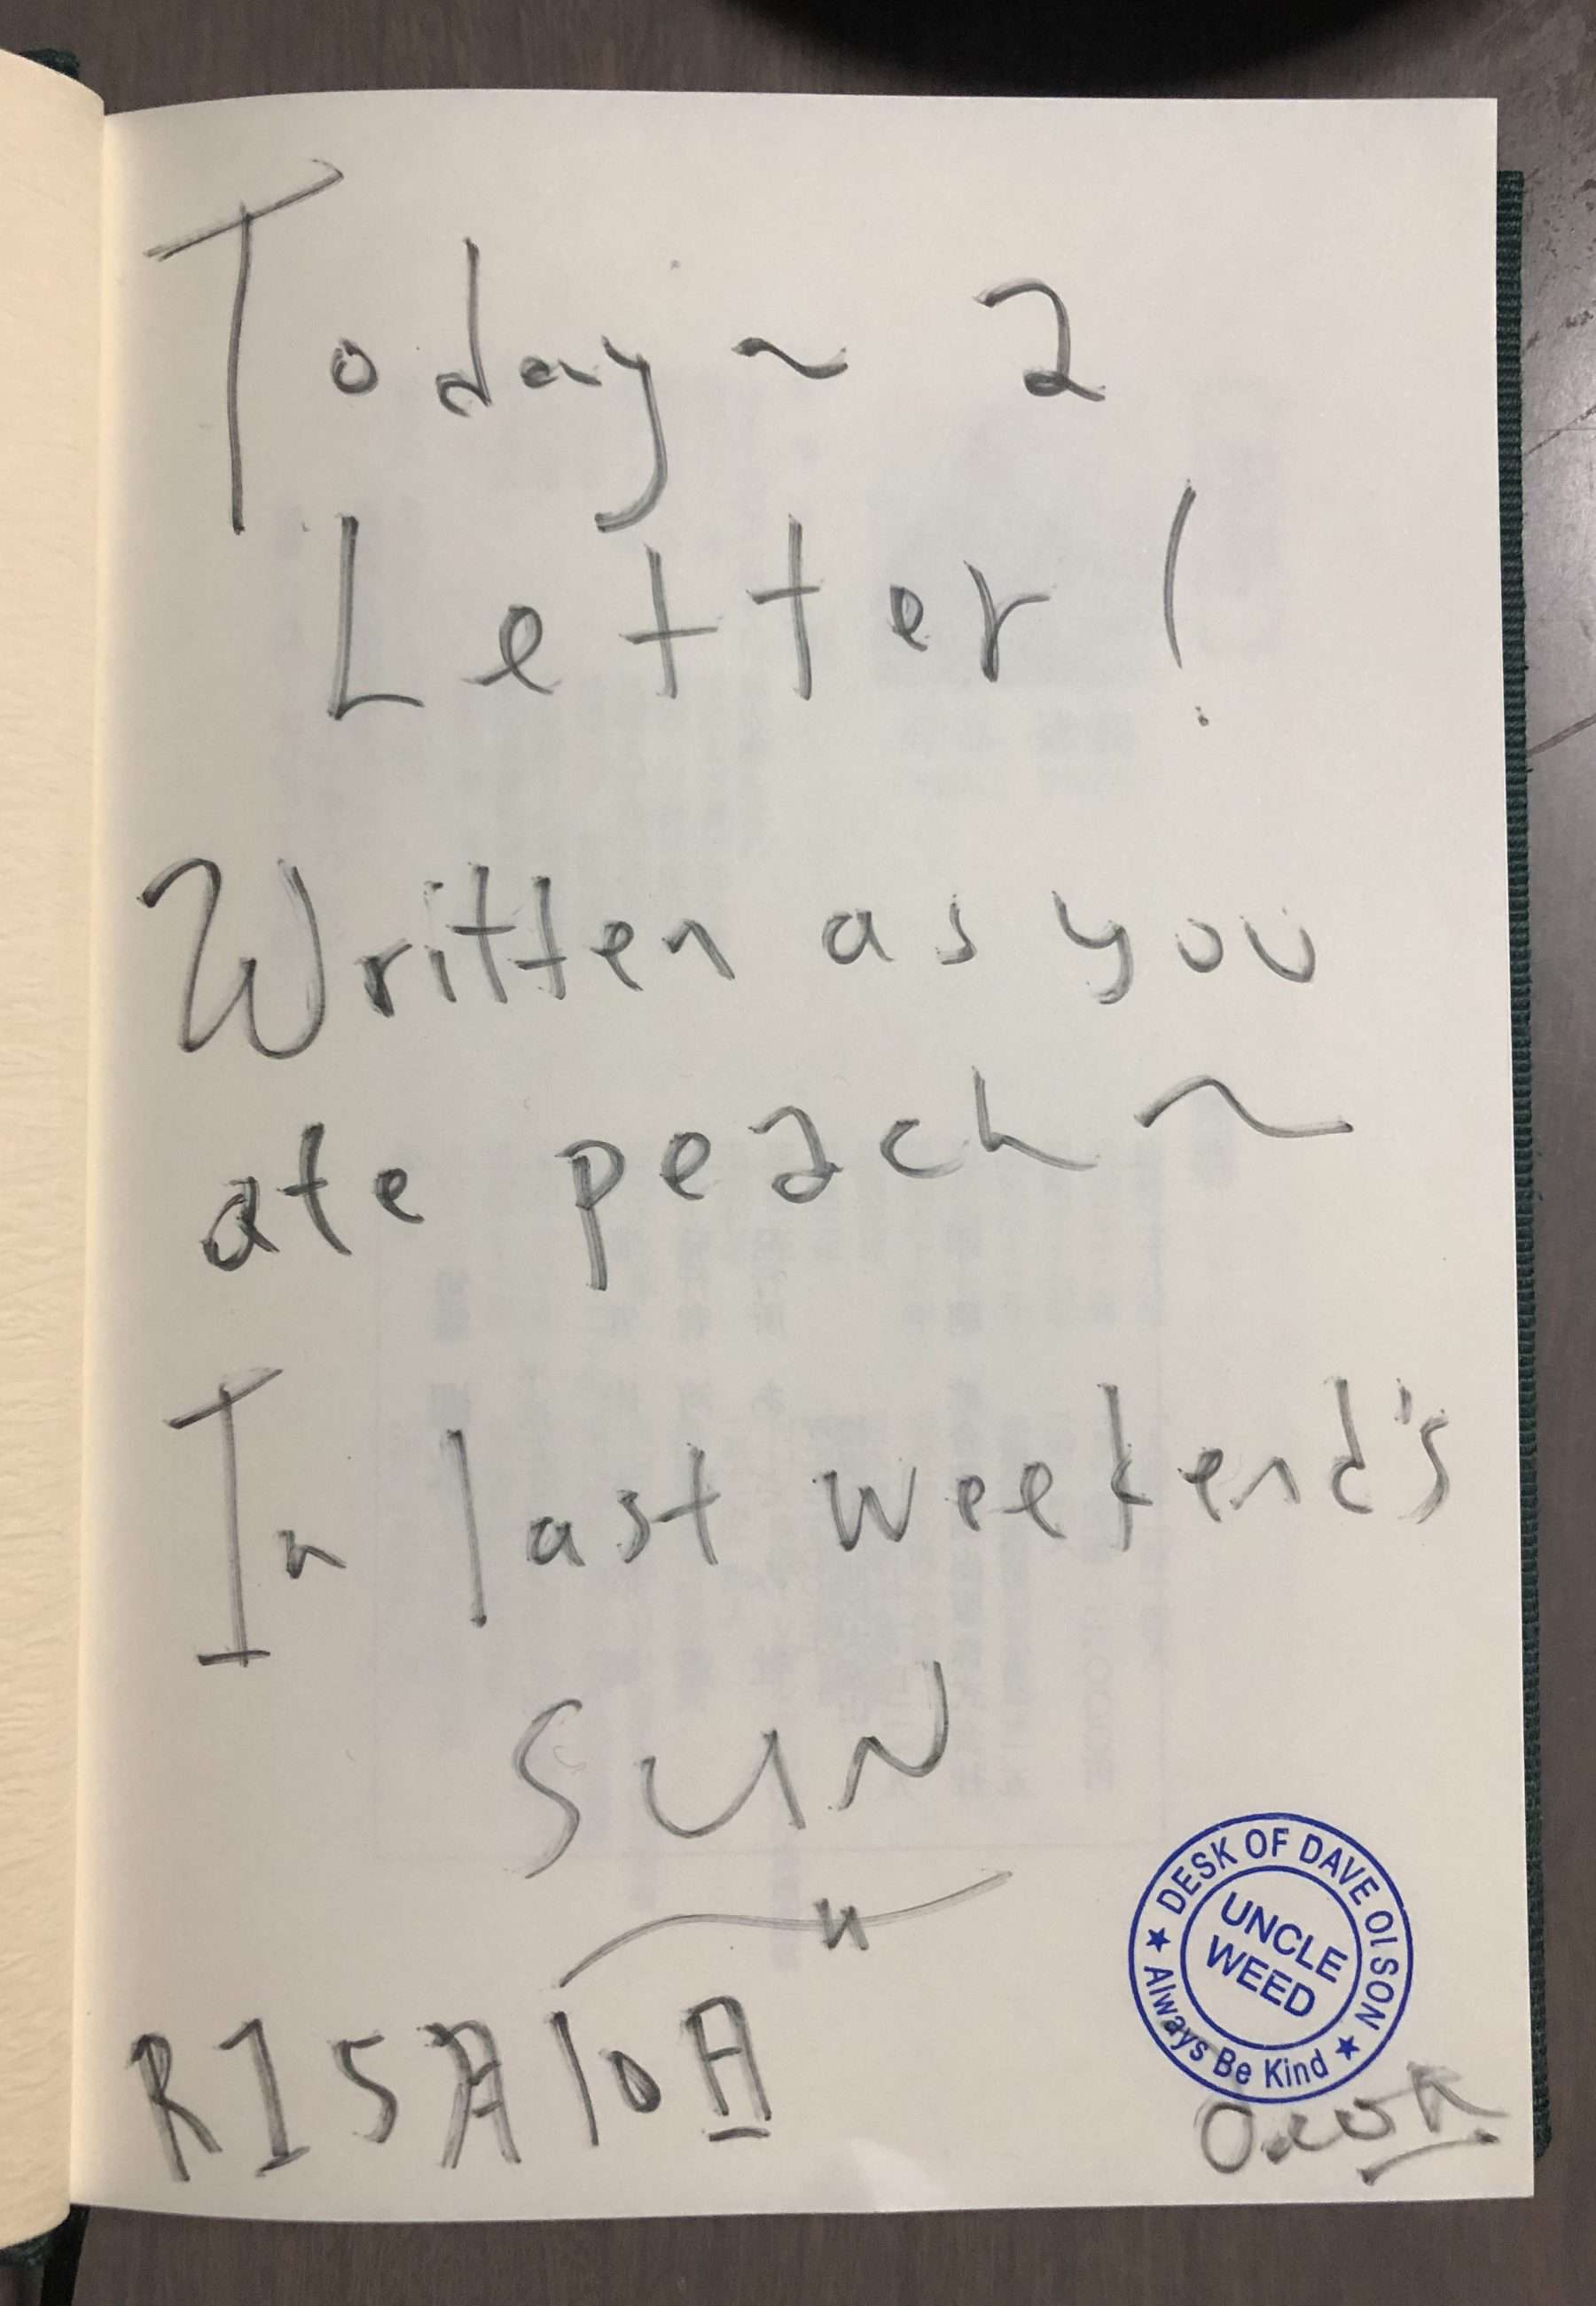 Today ~ a
Letter!
Written as you
ate peach ~
In last weekend's
SUN
R1 5月10日
★ DESK OF DAVE OLSON ★
UNCLE
WEED
Always Be Kind